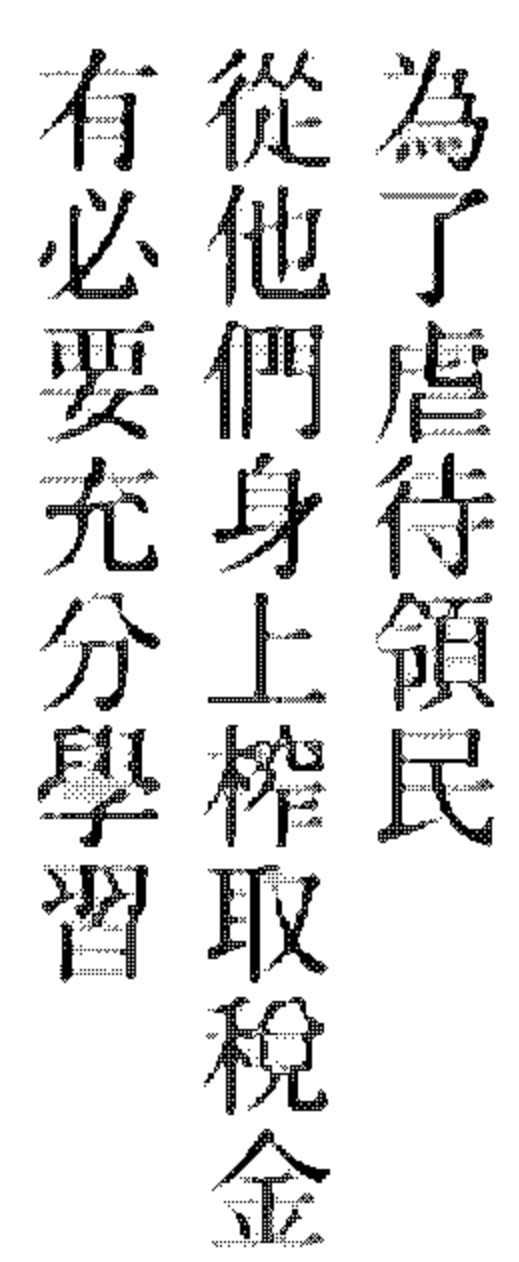 為了虐待領民
從他們身上榨取稅金
有必要充分學習